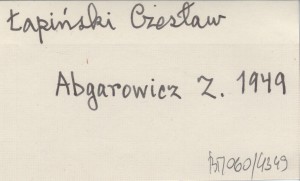 Łapiński Czesław
Abgarowicz Z. 1949
BM060/4349